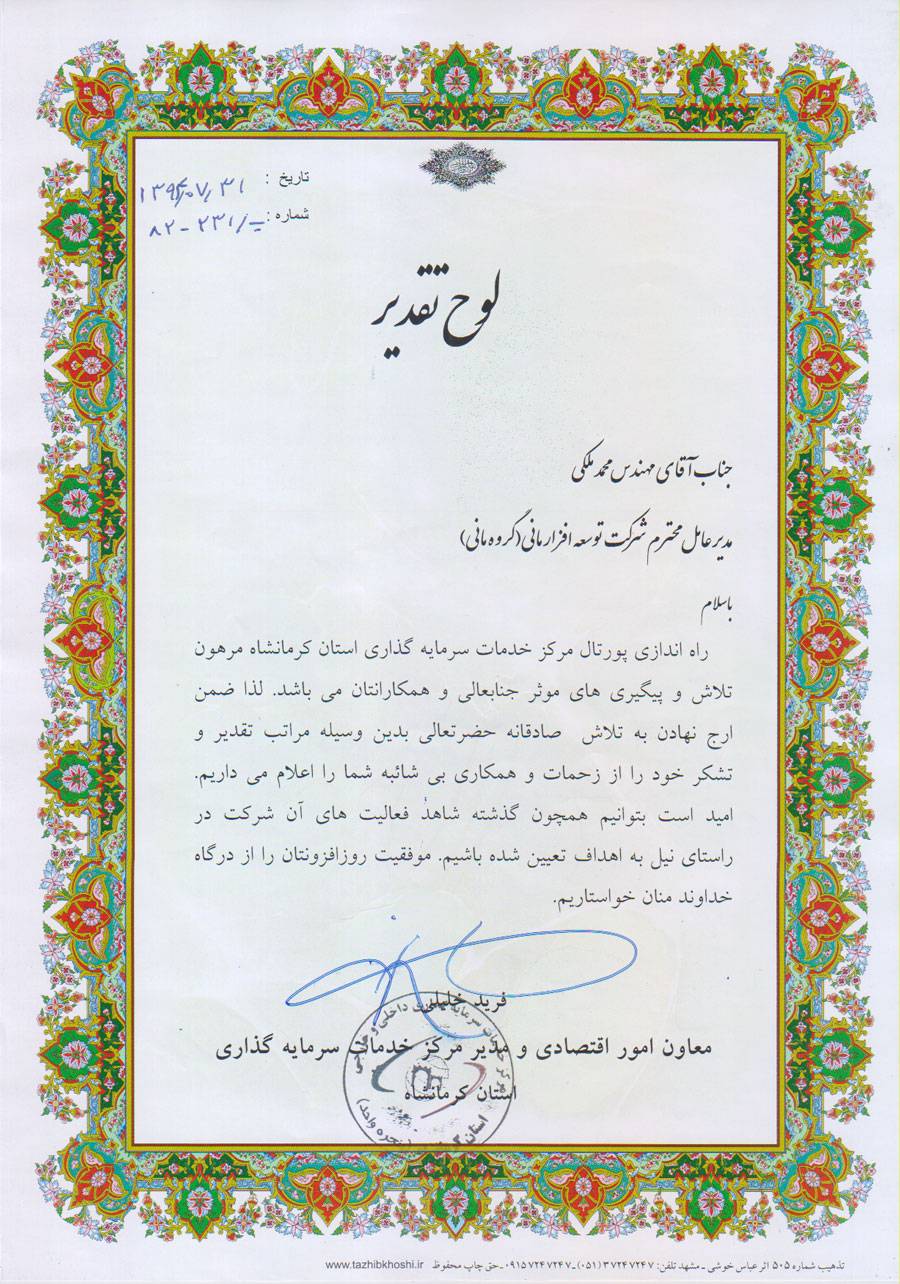 تاریخ : ۱۳۹۴/۰۷/۳۱
شماره : ۸۲-۲۳۱/
لوح تقدیر
جناب آقای مهندس محمد ملکی
مدیرعامل محترم شرکت توسعه افزار مانی (گروه مانی)
باسلام
راه اندازی پورتال مرکز خدمات سرمایه گذاری استان کرمانشاه مرهون
تلاش و پیگیری های موثر جنابعالی و همکارانتان می باشد. لذا ضمن
ارج نهادن به تلاش صادقانه حضرتعالی بدین وسیله مراتب تقدیر و
تشکر خود را از زحمات و همکاری بی شائبه شما را اعلام می داریم.
امید است بتوانیم همچون گذشته شاهد فعالیت های آن شرکت در
راستای نیل به اهداف تعیین شده باشیم. موفقیت روزافزونتان را از درگاه
خداوند منان خواستاریم.
فرید خلیلی
معاون امور اقتصادی و مدیر مرکز خدمات سرمایه گذاری
استان کرمانشاه
تذهیب شماره ۵۰۵ اثر عباس خوشی ـ مشهد تلفن: ۳۷۲۴۷۲۴۷ (۰۵۱) ـ ۰۹۱۵۷۲۴۷۲۴۷ ـ حق چاپ محفوظ www.tazhibkhoshi.ir